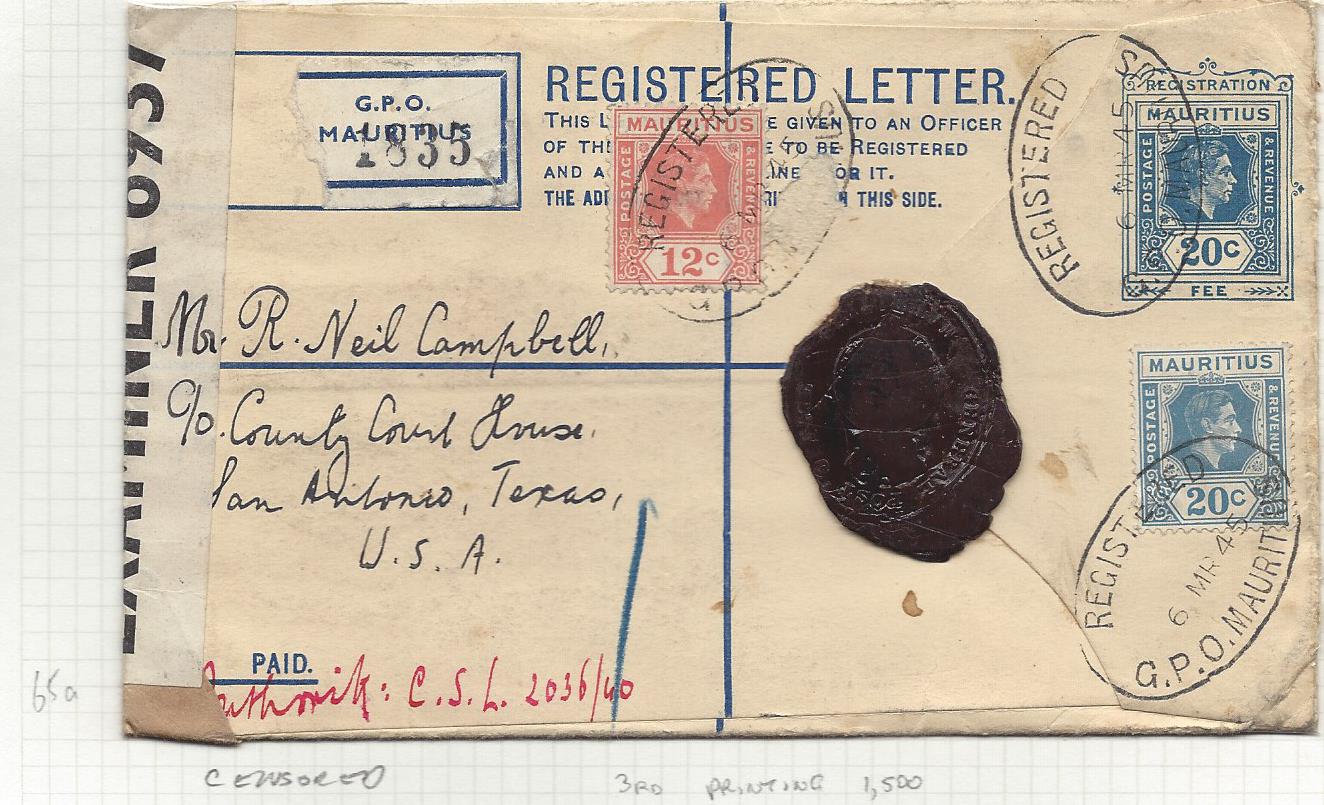 EXAMINER 6937
G.P.O.
MAURITIUS
1835
REGISTERED LETTER.
THIS L E GIVEN TO AN OFFICER
OF THE TO BE REGISTERED
AND A LINE FOR IT.
THE ADD THIS SIDE.
MAURITIUS
POSTAGE
& REVENUE
12C
REGISTERED
REGISTERED
6 MR 45
REGISTRATION
MAURITIUS
POSTAGE
& REVENUE
20C
FEE
Mr. R. Neil Campbell,
C/o. County Court House,
San Antonio, Texas,
U. S. A.
MAURITIUS
POSTAGE
& REVENUE
20C
REGISTERED
6 MR 45
G.P.O. MAURITI
PAID.
C.S.L. 2036/40
65a
CENSORED
3RD PRINTING 1,500